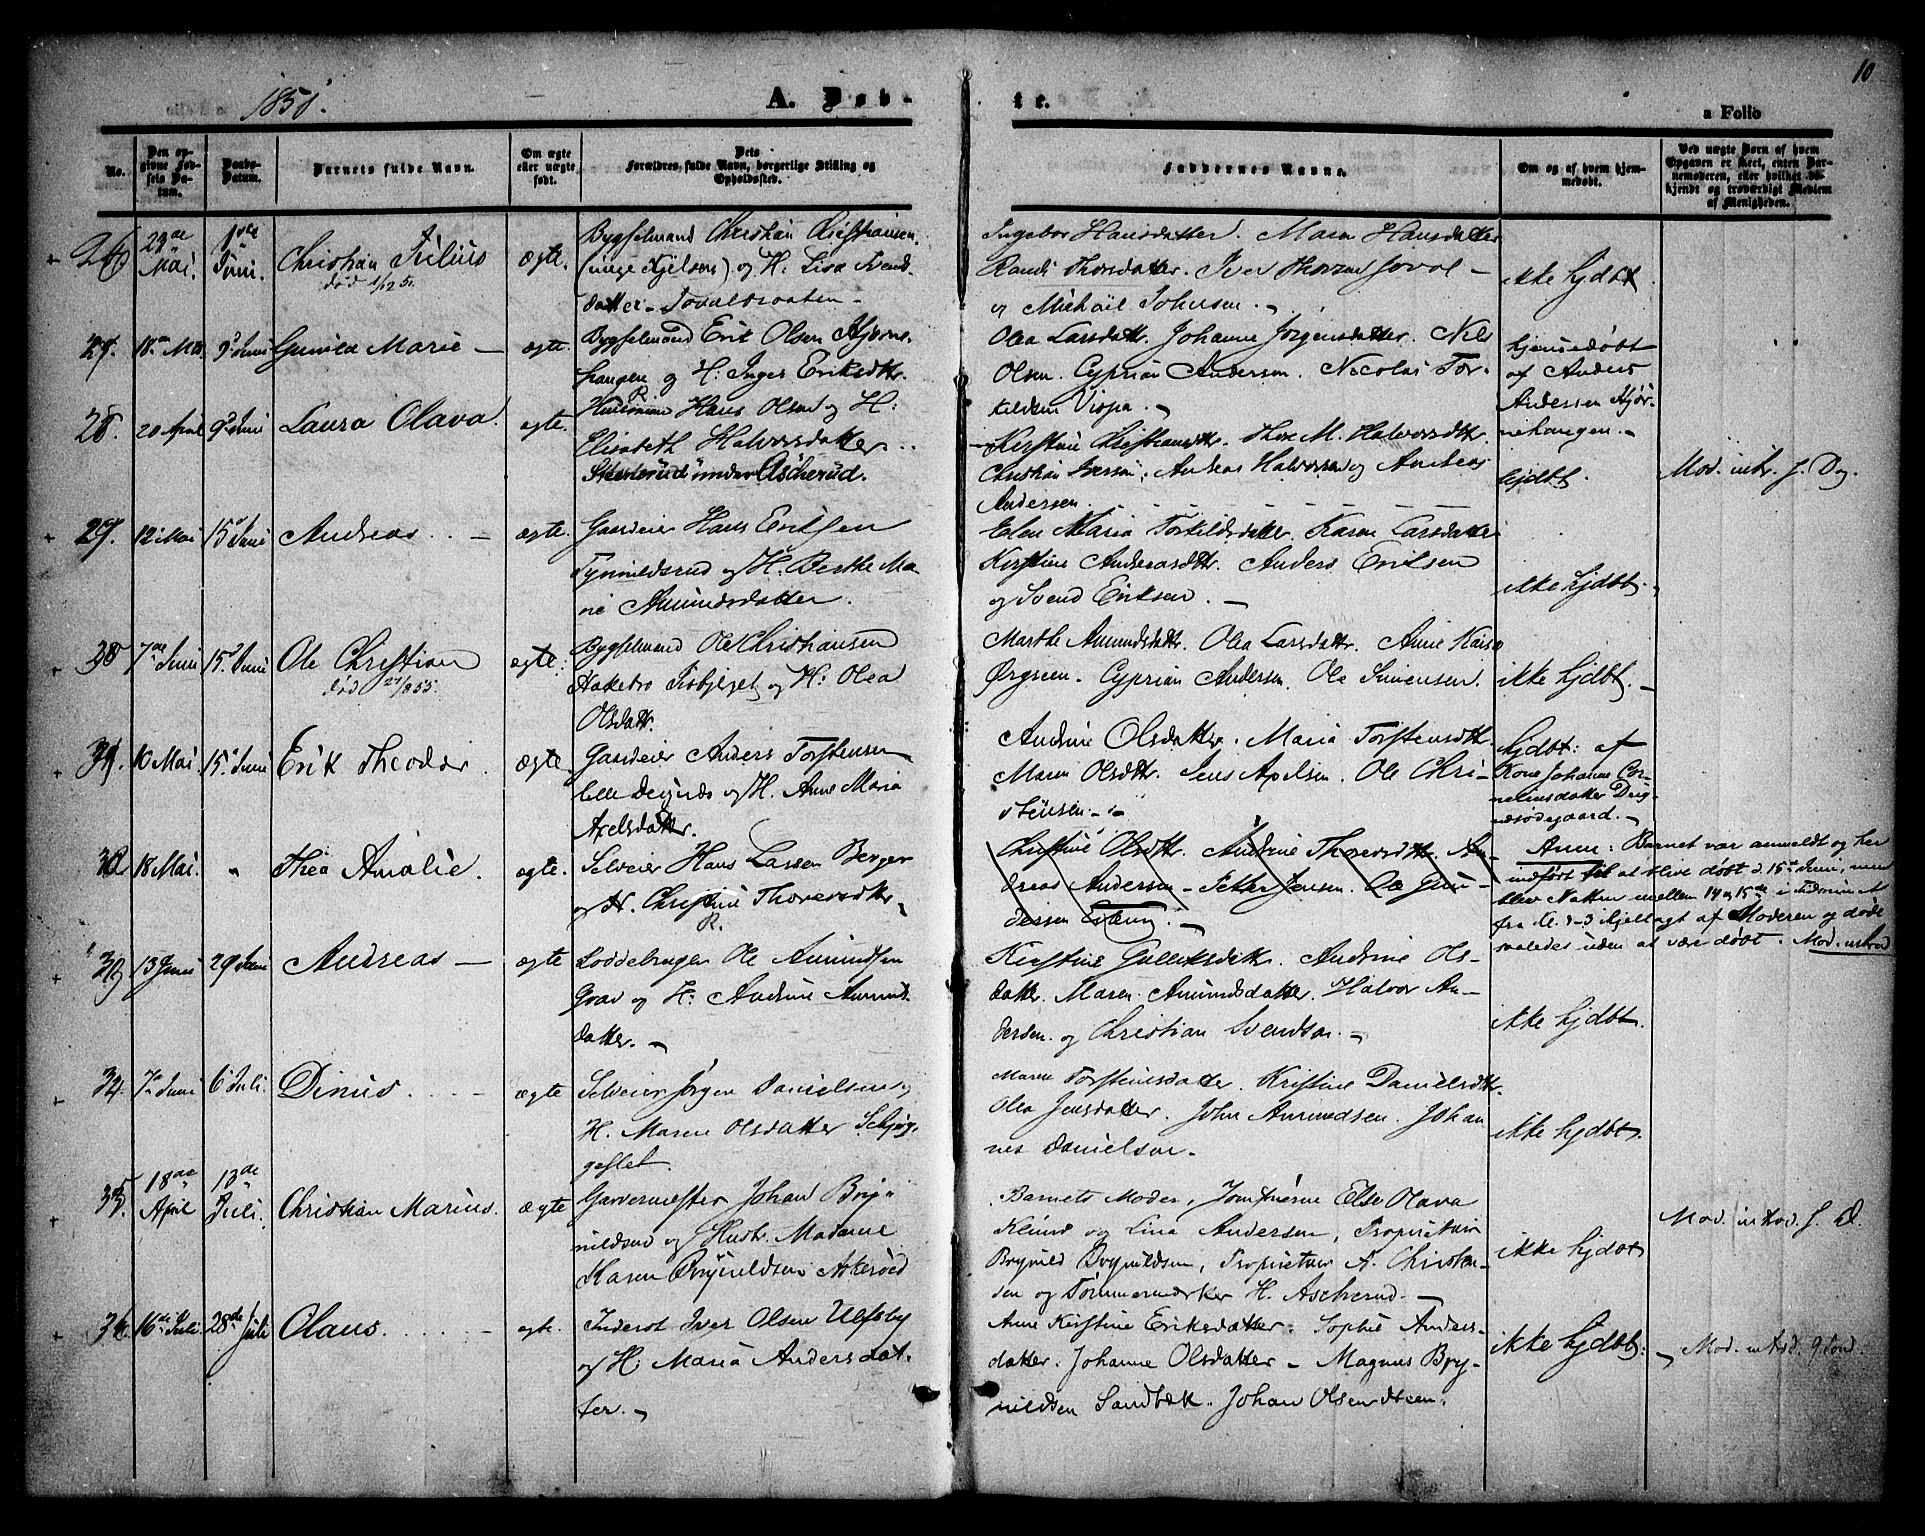 1851.
A. Døb-
te.
10
a Folio
No.
Den op-
givne Fød-
sels Da-
tum.
Daabs-
Datum.
Barnets fulde Navn.
Om ægte
eller uægte
født.
Dets
Forældres fulde Navn, borgerlige Stilling og
Opholdssted.
Faddernes Navne.
Om og af hvem hjem-
medøbt.
Ved uægte Børn af hvem
Opgaven er skeet, enten Bar-
nemoderen, eller hvilket be-
kjendt og troværdigt Medlem
af Menigheden.
26
23de
Mai.
1ste
Juni.
Christian Julius
død 1/12 51
ægte.
Bygselmand Christian Christiansen
og H. Lisa Svends-
datter
Ingebor Hansdatter. Maren Hansdatter
Randi Thorsdatter. Iver
og Michail Johnsen.
ikke hjdbt.
27.
18de Mai
9d Juni
Gunild Marie —
ægte.
Bygselmand Erik Olsen Hjørne-
haugen og H: Inger Eriksdtr.
Olea Larsdattr. Johanne Jørgensdatter. Nils
Olsen. Cyprian Andersen. Nicolai Tor-
kildsen Vispa.
hjemmedøbt
af Anders
Andersen Hjør-
nehaugen.
28.
20 April
9de Juni
Laura Olava.
ægte.
Huusmand Hans Olsen og H:
Elisabeth Halvorsdatter
under Ascherud.
Kirstine Christiansdtr. Thore M. Halvorsdtr.
Christian Andreas Halvorsen og Andreas
Andersen.
hjdbt.
Mod. intr. s. D.
29.
12 Mai
15d Juni
Andreas
ægte.
Gaardeier Hans Eriksen
og H. Berthe Ma-
rie Amundsdatter.
Elen Maria Torkildsdatter. Karen Larsdatter
Kirstine Andreasdtr. Anders Eriksen
og Svend Eriksen.
ikke hjdbt.
30
7de Juni
15d Juni
Ole Christian
død 24/8 55.
ægte.
Bygselmand Ole Christiansen
Hakebro og H: Olea
Olsdattr.
Marthe Amundsdattr. Olea Larsdattr. Anne Kaisa
Cyprian Andersen. Ole Simensen.
ikke hjdbt.
31.
10 Mai.
15d Juni
Erik Theodor.
ægte
Gaardeier Anders Torstensen
lille og H. Anne Maria
Axelsdattr.
Andrine Olsdatter. Maria Torstensdtr.
Maren Olsdtr. Jens Axelsen. Ole Chri-
stensen.
hjdbt: af
Kone Johanne Cor-
neliusdatter
32
18 Mai.
"
Thea Amalie.
ægte.
Selveier Hans Larsen Berger
og H. Christine Thoresdtr.
Christine Olsdtr. Andrine Thoresdtr. An-
dreas Andersen — Petter Jensen. Ole Gun-
dersen
Anm: Barnet var anmeldt og her
indført til at blive døbt d. 15de Juni, men
blev Natten mellem 14 og 15de
fra Kl. 1-3 ihjellagt af Moderen og døde
saaledes uden at være døbt. Mod. introd
33
13 Juni
29 Juni
Andreas —
ægte
Loddebruger Ole Amundsen
Grav og H: Andrine Amunds-
datter.
Kirstine Gulliksdatr. Andrine Ols-
datter. Maren Amundsdatter. Halvor An-
dersen og Christian Svendsen.
ikke hjdbt.
34.
7de Juni
6d Juli.
Dinus
ægte
Selveier Jørgen Danielsen og
H. Maren Olsdatter
Maren Torstensdatter. Kristine Danielsdtr.
Olea Jensdatter. John Amundsen. Johan-
nes Danielsen.
ikke hjdbt.
35.
18de
April
13de
Juli.
Christian Marius.
ægte
Garvermester Johan Bryn-
nildsen og Hustr. Madame
Karen Brynildsen Askerød
Barnets Moder, Jomfruerne Else Olava
Klund og Lina Andersen, Proprietær
Brynild Brynildsen, Proprietær A. Christen-
sen og Tømmermærker H. Ascherud.
ikke hjdbt
Mod. introd. s. D.
36.
16de Juli
28de Juli
Olaus.
egte.
Inderst Iver Olsen Ulfsby
og H. Maria Andersdat-
ter.
Anne Kirstine Eriksdatter. Sophie Anders-
datter. Johanne Olsdatter — Magnus Bry-
nildsen Sandbæk. Johan Olsen
ikke hjdbt.
Mod. introd.